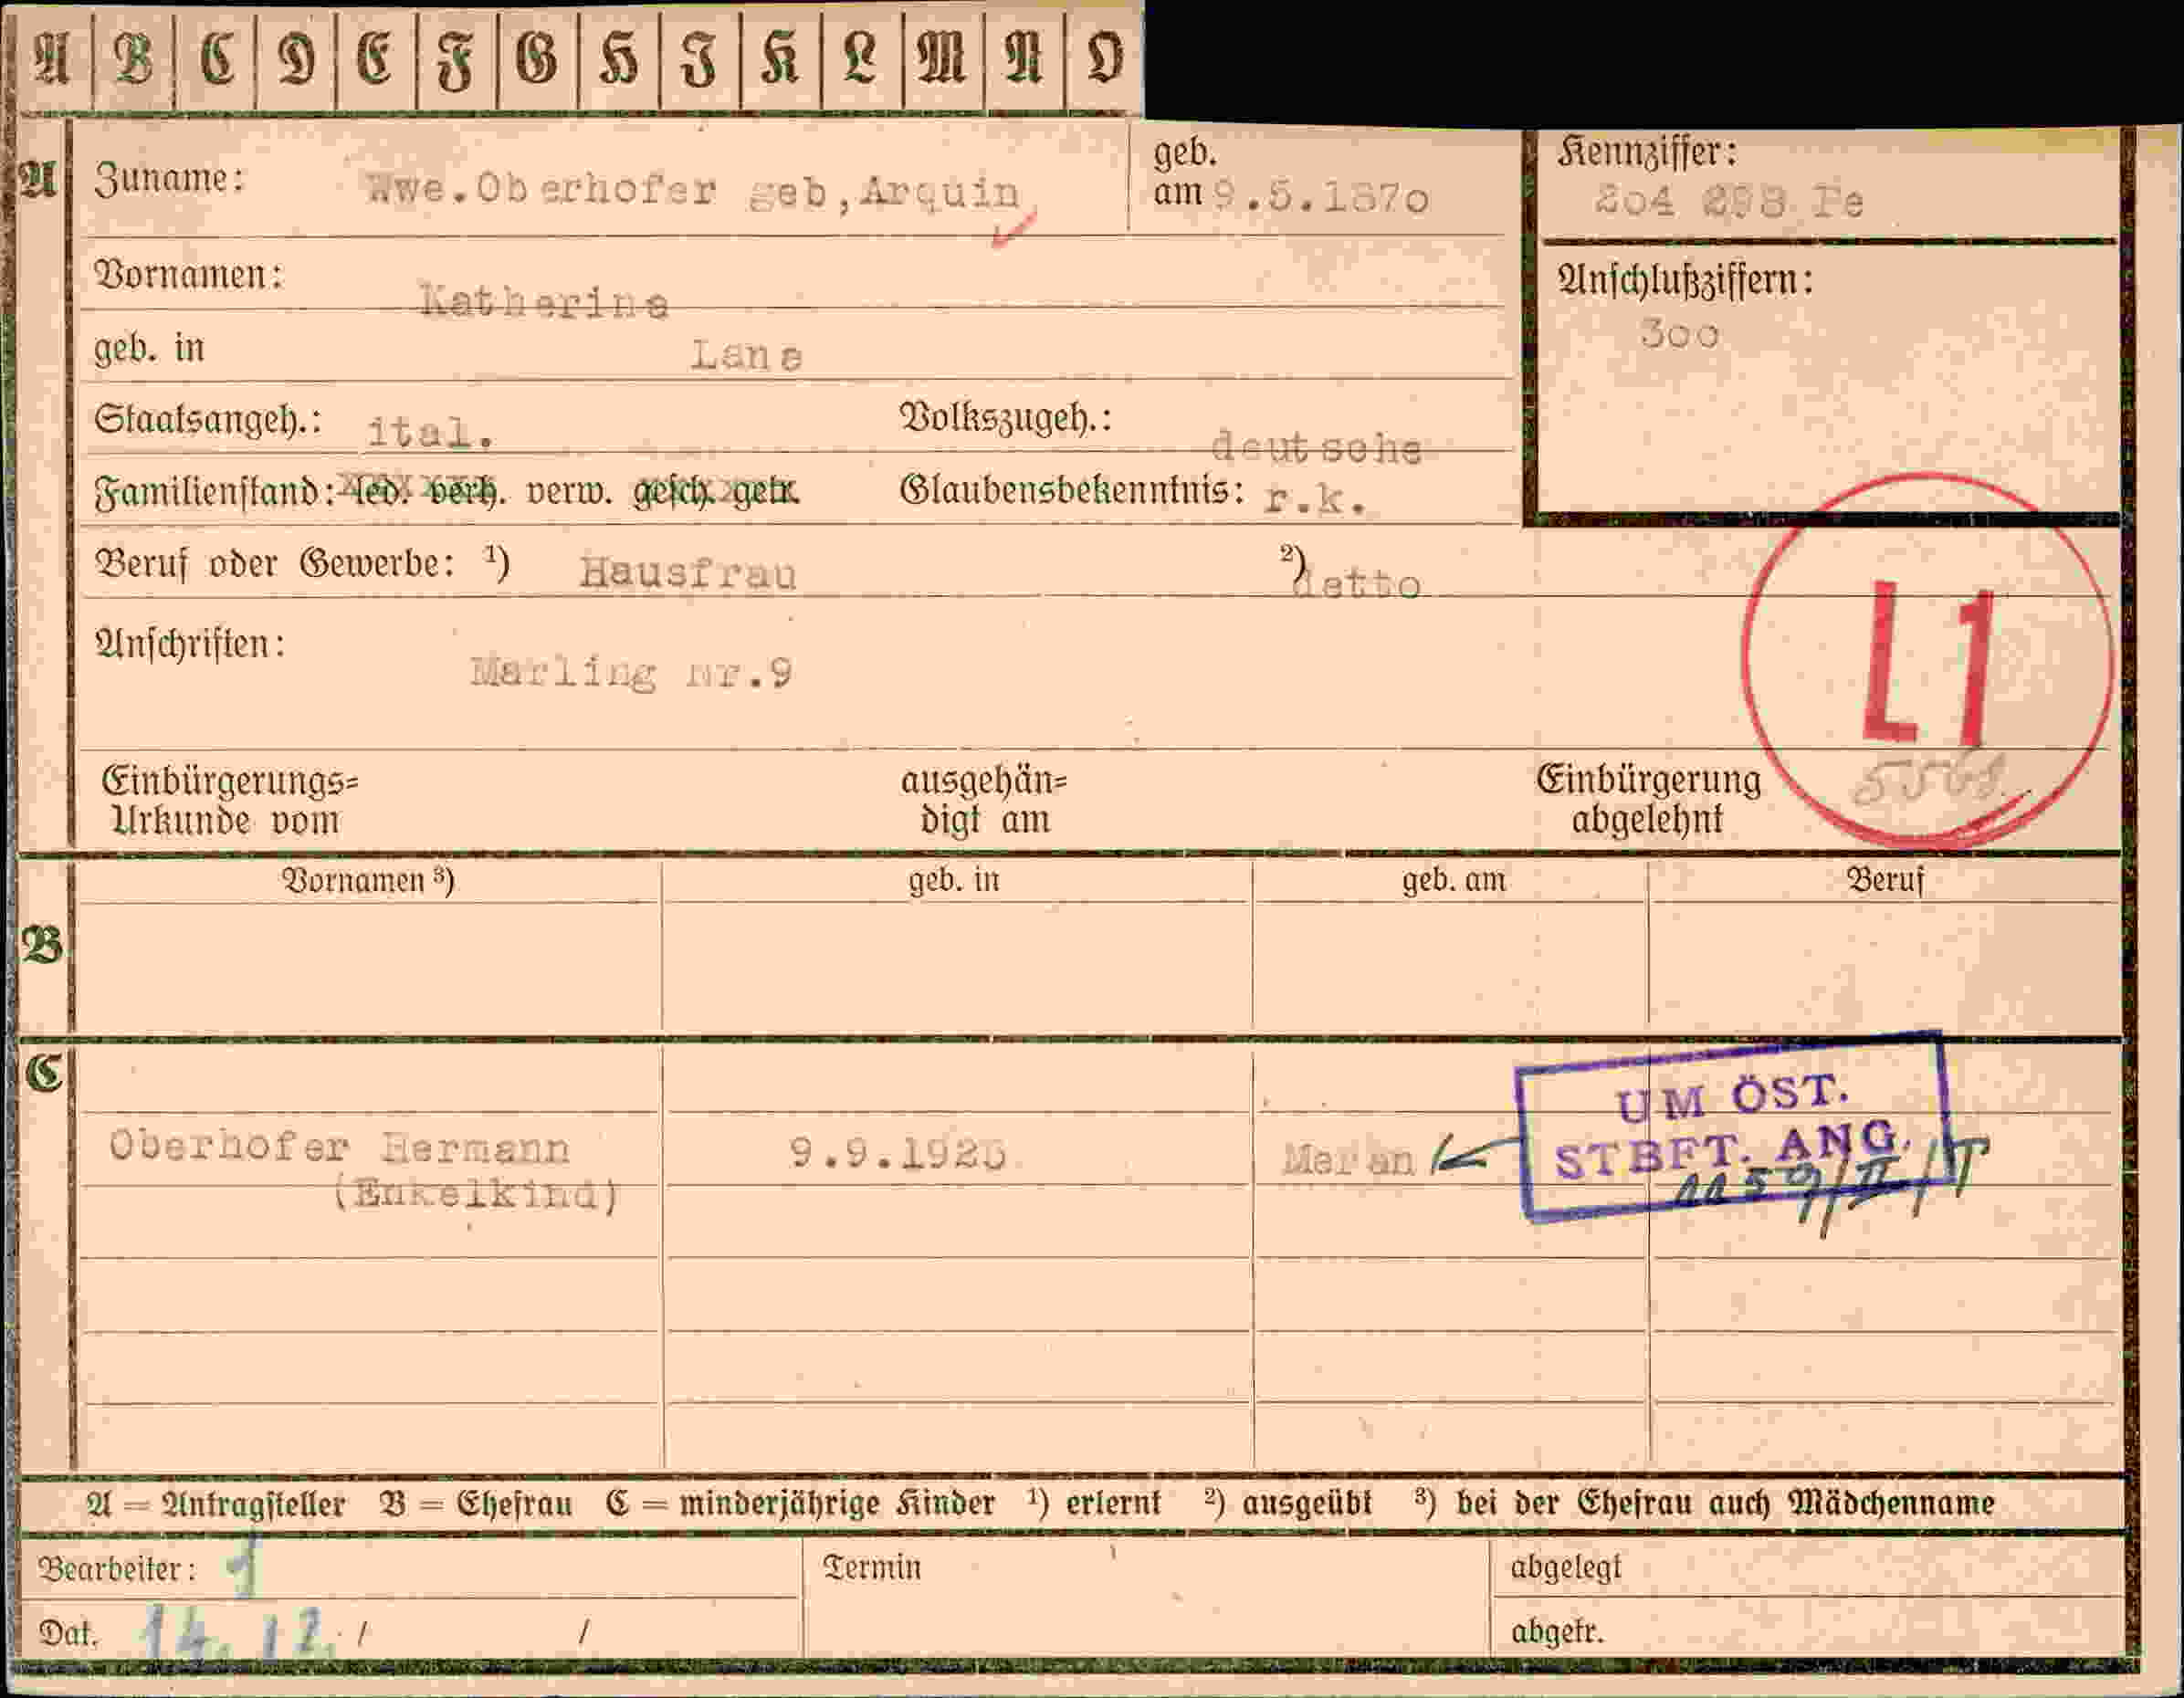 A B C D E F G H I K L M N O
A Zuname: Wwe.Oberhofer geb,Arquin
geb. am 9.5.1870
Kennziffer:
204 298 Pe
Vornamen: Katherina
Anschlußziffern:
300
geb. in Lana
Staatsangeh.: ital. Volkszugeh.: deutsche
Familienstand: led. verh. verw. gesch. getr. Glaubensbekenntnis: r.k.
Beruf oder Gewerbe: 1) Hausfrau 2) detto
Anschriften: Marling nr.9
L1
Einbürgerungs=
Urkunde vom
ausgehän=
digt am
Einbürgerung
abgelehnt
Vornamen 3) geb. in geb. am Beruf
B
C
Oberhofer Hermann 9.9.1925 Meran
(Enkelkind)
UM ÖST.
STBFT. ANG.
1159/II/T
A = Antragsteller B = Ehefrau C = minderjährige Kinder 1) erlernt 2) ausgeübt 3) bei der Ehefrau auch Mädchenname
Bearbeiter: 1 Termin abgelegt
Dat. 14.12. / / abgetr.